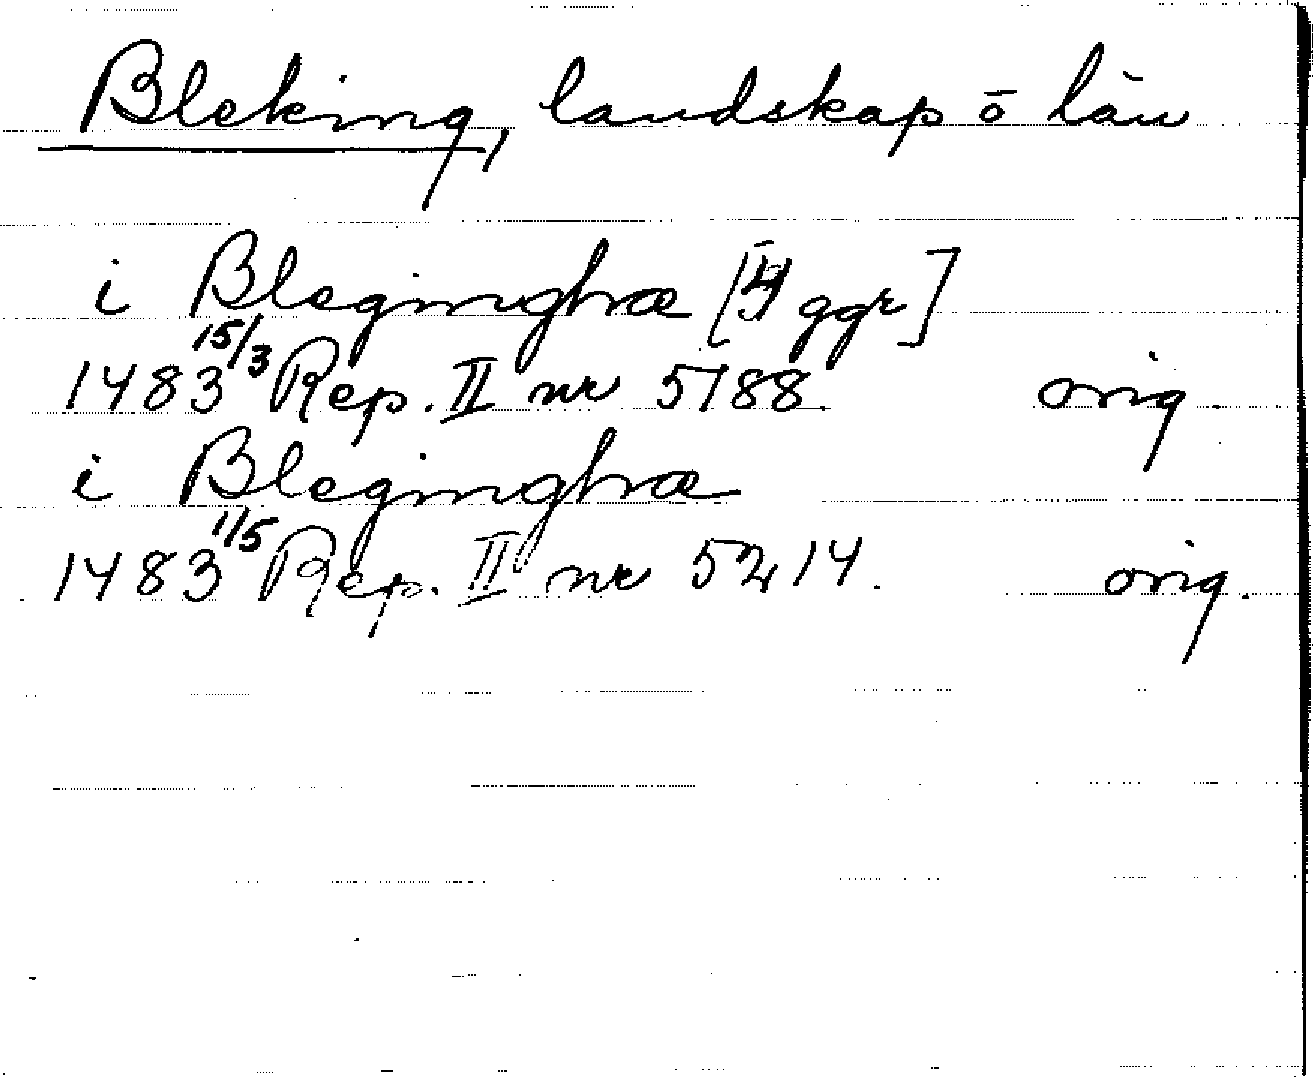 Bleking, landskap ō län
i Bleginghræ [4 ggr]
1483 15/3 Rep. II nr 5188. orig.
i Bleginghræ
1483 1/5 Rep. II nr 5214. orig.